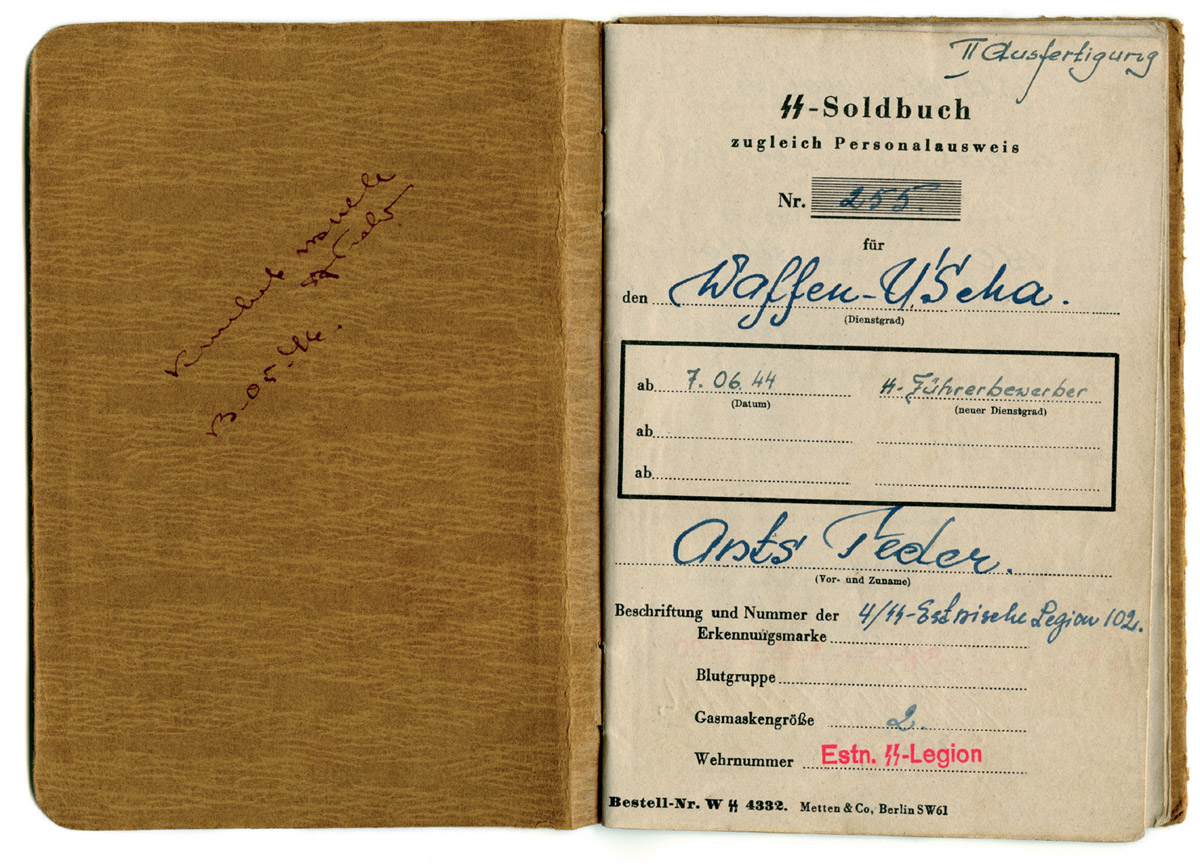 II Ausfertigung
ᛋᛋ-Soldbuch
zugleich Personalausweis
Nr. 255.
für
den Waffen-U'Scha.
(Dienstgrad)
ab 7. 06. 44 ᛋᛋ-Führerbewerber
(Datum) (neuer Dienstgrad)
ab
ab
Ants Feder.
(Vor- und Zuname)
Beschriftung und Nummer der 4/ᛋᛋ-Estnische Legion 102.
Erkennungsmarke
Blutgruppe
Gasmaskengröße 2.
Wehrnummer Estn. ᛋᛋ-Legion
Bestell-Nr. W ᛋᛋ 4332. Metten & Co, Berlin SW61